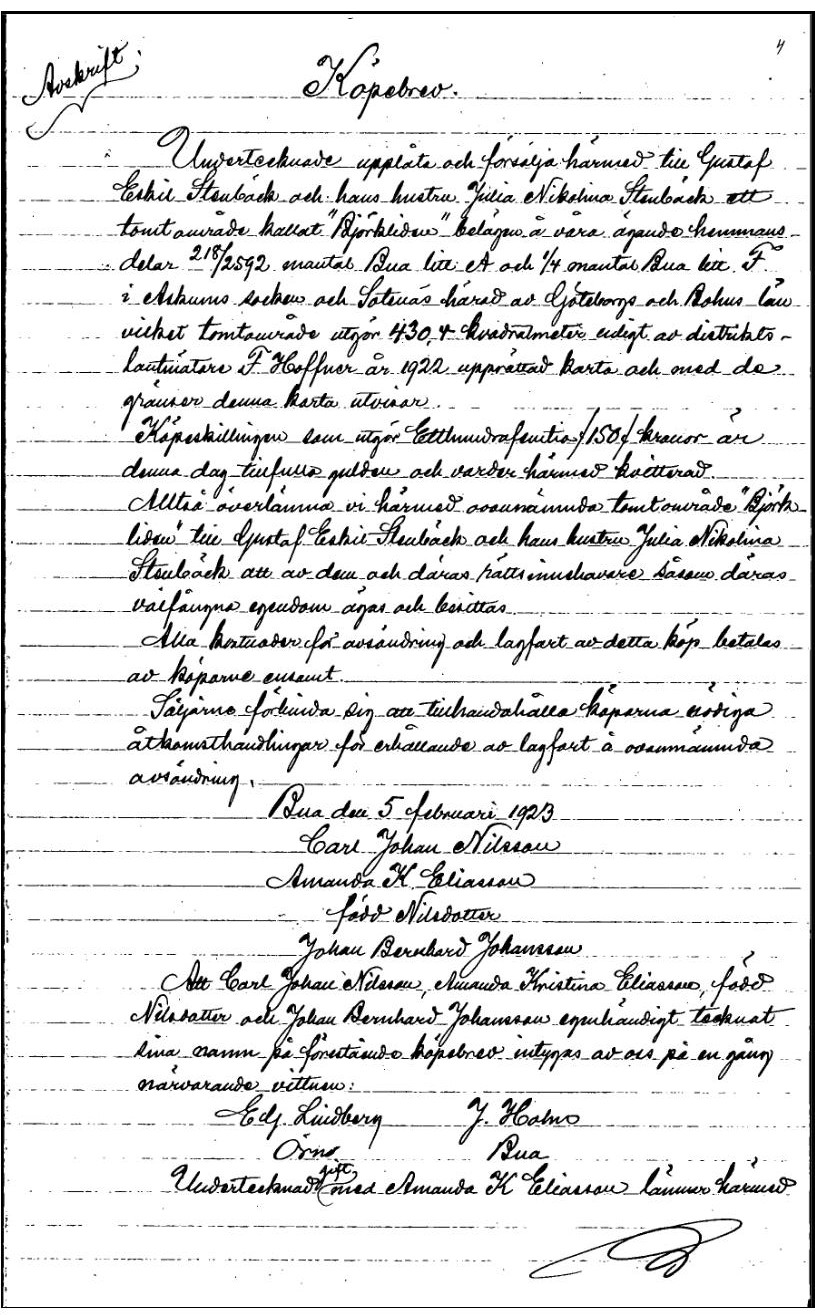 4
Avskrift;
Köpebrev.
Undertecknade upplåta och försälja härmed till Gustaf
Eskil Stenbäck och hans hustru Julia Nikolina Stenbäck ett
tomtområde kallat "Björkliden" belägen å våra ägande hemmans
delar 218/2592 mantal Bua litt A och 1/4 mantal Bua litt F
i Askums socken och Sotenäs härad av Göteborgs och Bohus län
vilket tomtområde utgör 430,4 kvadratmeter enligt av distrikts-
lantmätare F Hoffner år 1922 upprättad karta och med de
gränser denna karta utvisar.
Köpeskillingen som utgör Etthundrafemtio /150/ kronor är
denna dag tillfullo gulden och varder härmed kvitterad.
Alltså överlämna vi härmed ovannämnda tomtområde "Björk-
liden" till Gustaf Eskil Stenbäck och hans hustru Julia Nikolina
Stenbäck att av dem och däras rättsinnehavare såsom däras
välfångna egendom ägas och besittas
Alla kostnader för avsöndring och lagfart av detta köp betalas
av köparne ensamt.
Säljarne förbinda sig att tillhandahålla köparna nödiga
åtkomsthandlingar för erhållande av lagfart å ovannämnda
avsöndring.
Bua den 5 februari 1923
Carl Johan Nilsson
Amanda K Eliasson
född Nilsdotter
Johan Bernhard Johansson
Att Carl Johan Nilsson, Amanda Kristina Eliasson, född
Nilsdotter och Johan Bernhard Johansson egenhändigt tecknat
sina namn på förestående köpebrev intygas av oss på en gång
närvarande vittnen:
Edf. Lindberg J. Holm
Örn Bua
gift
Undertecknad med Amanda K Eliasson lämnar härmed